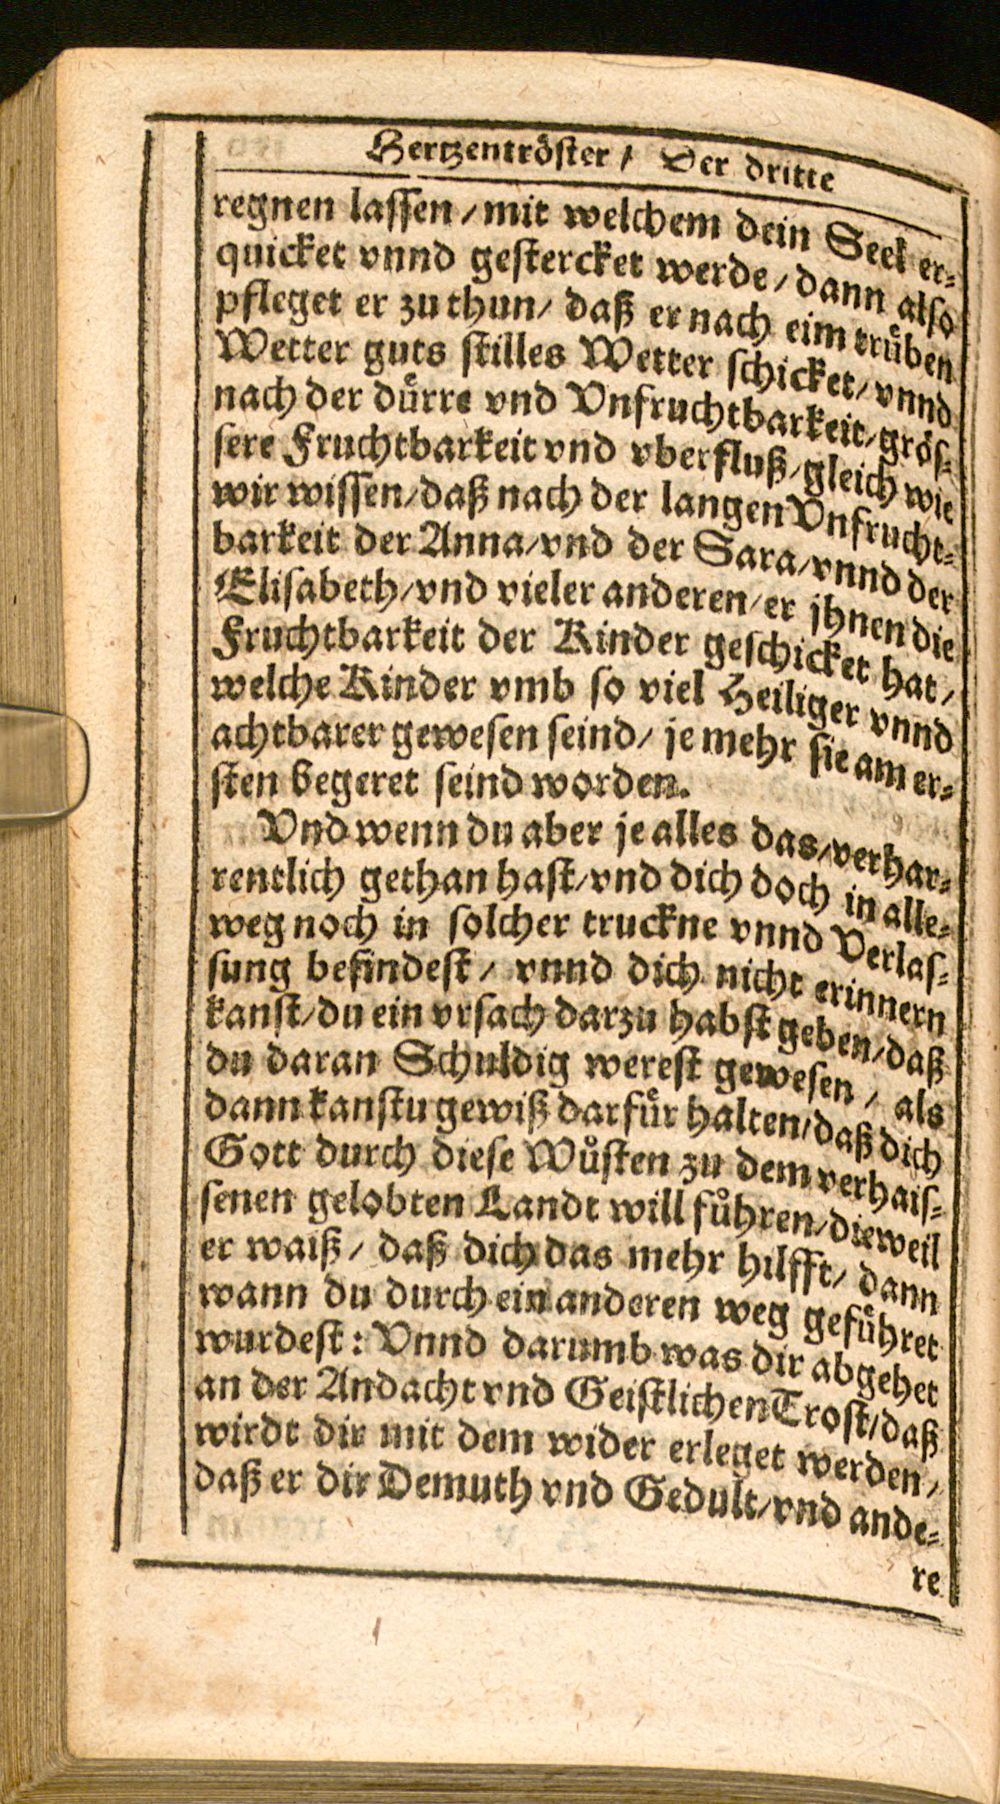 Hertzentröster / Der dritte
regnen lassen / mit welchem dein Seel er-
quicket vnnd gestercket werde / dann also
pfleget er zu thun / daß er nach eim trüben
Wetter guts stilles Wetter schicket / vnnd
nach der dürre vnd Vnfruchtbarkeit / grös-
sere Fruchtbarkeit vnd vberfluß / gleich wie
wir wissen / daß nach der langen Vnfrucht-
barkeit der Anna / vnd der Sara / vnnd der
Elisabeth / vnd vieler anderen / er jhnen die
Fruchtbarkeit der Kinder geschicket hat /
welche Kinder vmb so viel Heiliger vnnd
achtbarer gewesen seind / je mehr sie am er-
sten begeret seind worden.
Vnd wenn du aber je alles das / verhar-
rentlich gethan hast / vnd dich doch in alle-
weg noch in solcher truckne vnnd Verlas-
sung befindest / vnnd dich nicht erinnern
kanst / du ein vrsach darzu habst geben / daß
du daran Schuldig werest gewesen / als
dann kanstu gewiß darfür halten / daß dich
Gott durch diese Wuͤsten zu dem verhais-
senen gelobten Landt will fuͤhren / dieweil
er waiß / daß dich das mehr hilfft / dann
wann du durch ein anderen weg gefuͤhret
wurdest : Vnnd darumb was dir abgehet
an der Andacht vnd Geistlichen Trost / daß
wirdt dir mit dem wider erleget werden /
daß er dir Demuth vnd Gedult / vnd ande-
re